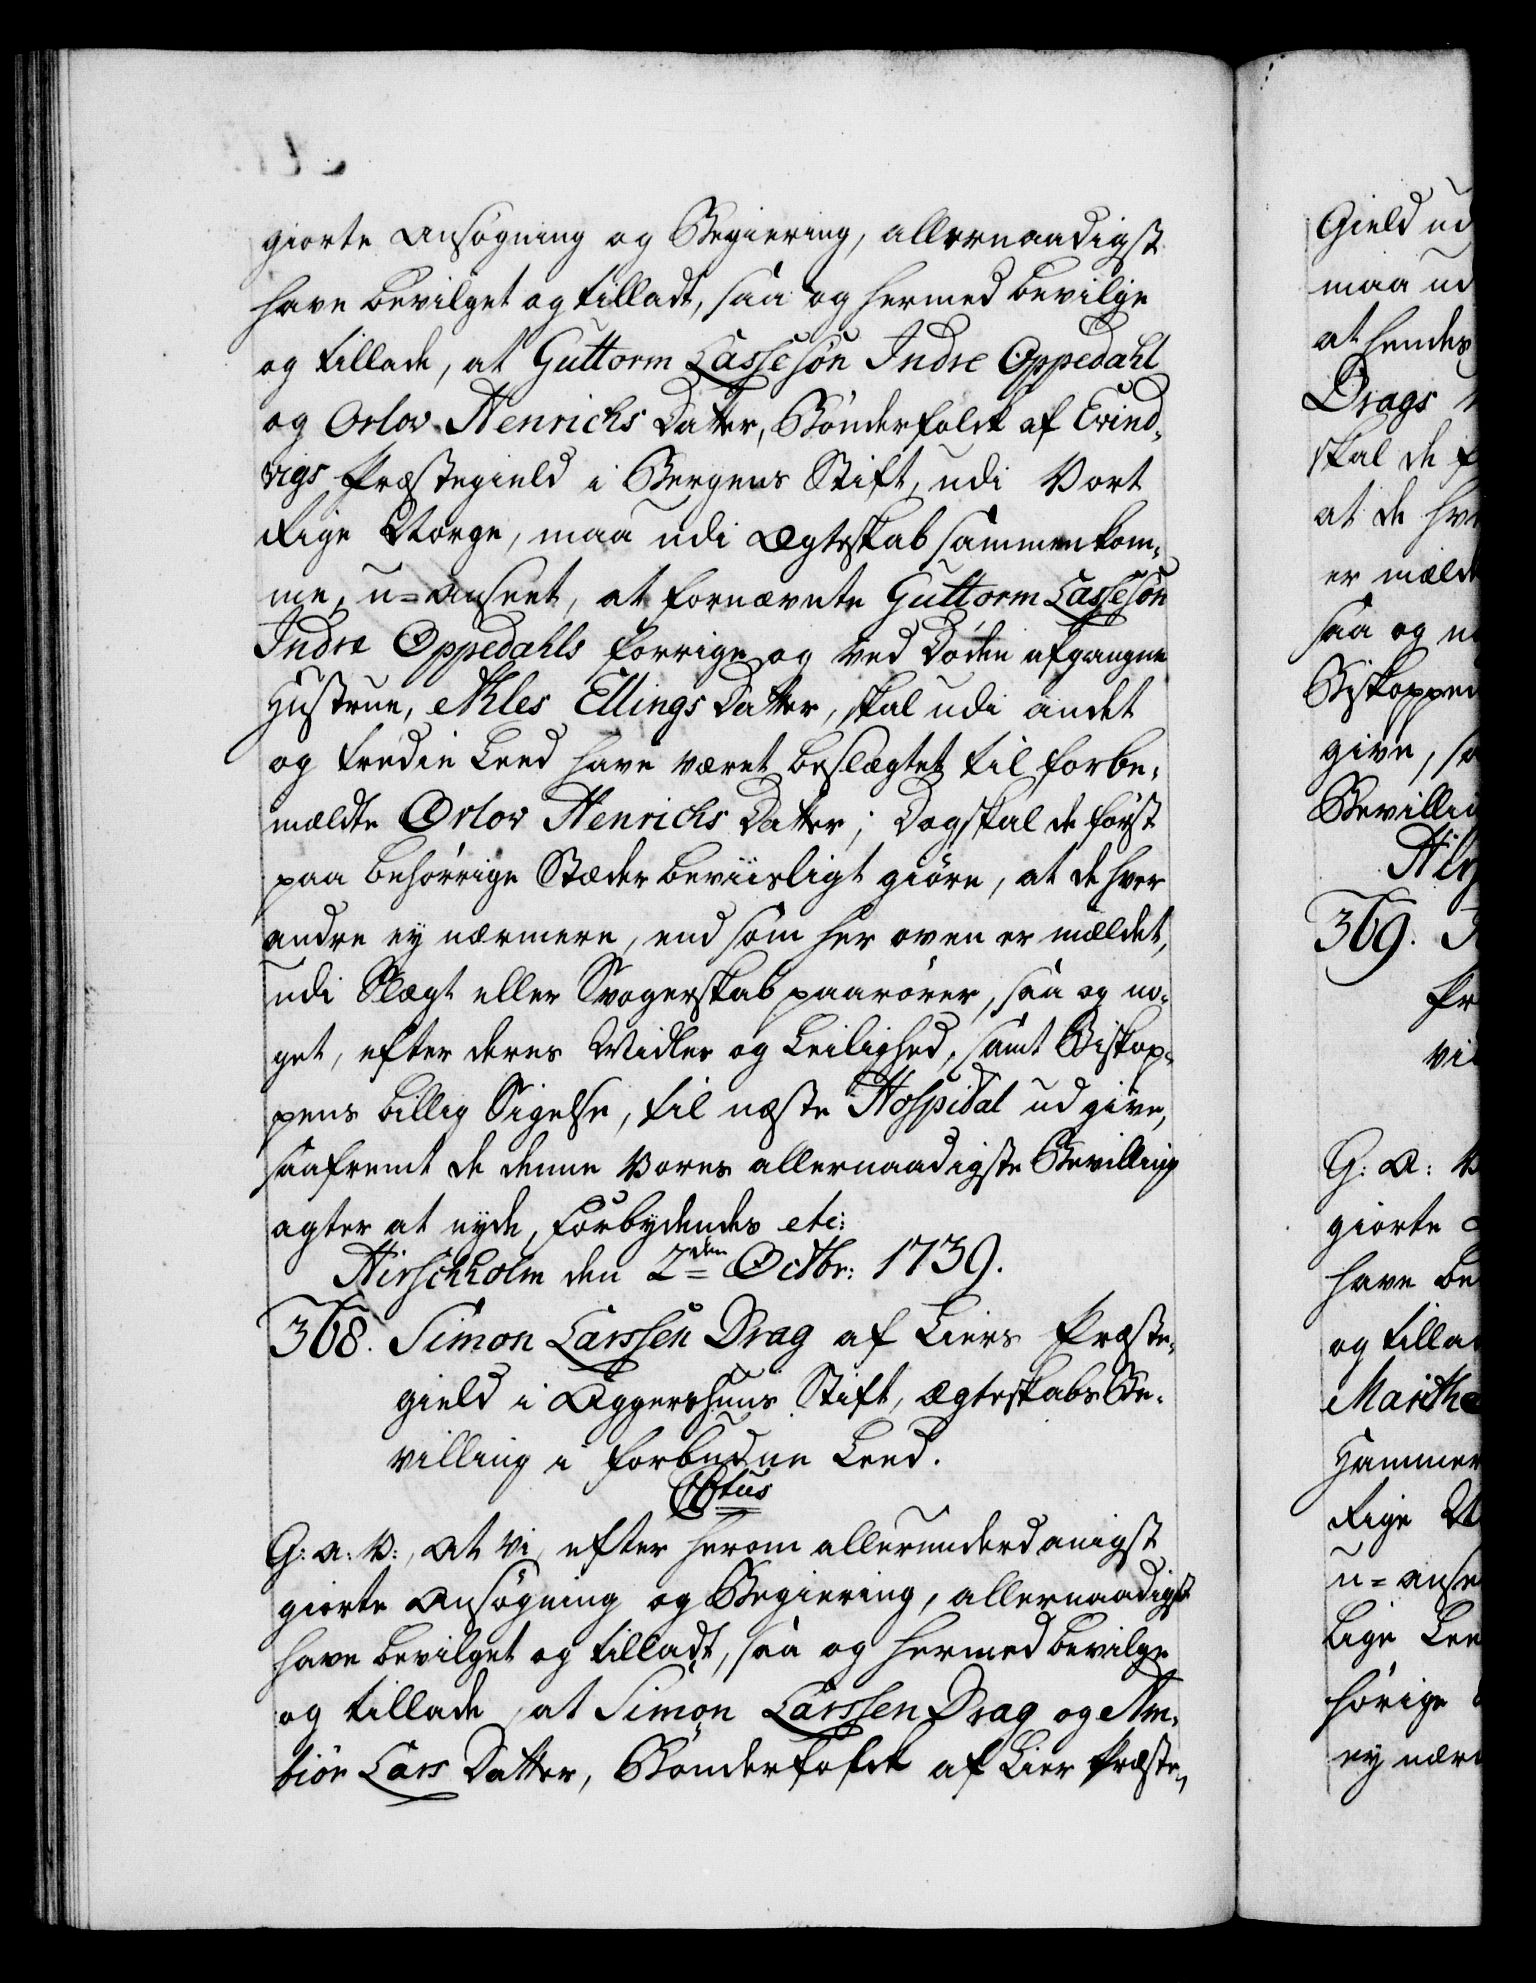 giorte Ansøgning og Begiering, allernaadigst
have bevilget og tilladt, saa og hermed bevilge
og tillade, at Guttorm Lassesøn Indre Oppedahl
og Orlov Henrichs Datter, Bønderfolck af Evind-
vigs Præstegield i Bergens Stift, udi Vort
Rige Norge, maa udi Ægteskab sammenkom-
me, u=anseet, at fornævnte Guttorm Lassesøn
Indre Oppedahls forrige og ved Døden afgangne
Hustrue, Ahles Ellings Datter, skal udi andet
og tredie Leed have været beslægtet til forbe-
meldte Orlov Henrichs Datter; Dog skal de først
paa behørrige Stæder beviisligt giøre, at de hver
andre ey nærmere, end som her oven er meldet,
udi Slægt eller Svogerskab paarører, saa og no-
get, efter deres Midler og Leilighed, samt Biskop-
pens billig Sigelse, til næste Hospital udgive,
saafremt de denne Vores allernaadigste Bevilling
agter at nyde, Forbydendes etc:
Hirschholm den 2den Octbr: 1739.
368. Simon Larssen Drag af Liers Præste-
gield i Aggershuus Stift, Ægteskabs Be-
villing i forbudne Leed.
C6tus
G: a: V:, At Vi, efter herom allerunderdanigst
giorte Ansøgning og Begiering, allernaadigst
have bevilget og tilladt, saa og hermed bevilge
og tillade, at Simon Larssen Drag og Am-
biør Lars Datter, Bønderfolck af Lier Præste-
Gield ud
maa ud
at hendes
Drags
skal de f
at de hve
er meldt
saa og n
Biskoppen
give, sa
Bevillin
Hir
369.
Pr
vi
G: A: V
giorte
have be
og tillad
Marthe
Hammer
Rige N
u=anse
Lige Lee
hørige
ey nær